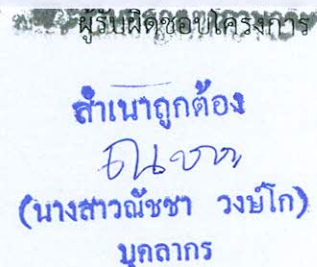 ผู้รับผิดชอบโครงการ
สำเนาถูกต้อง
(นางสาวณัชชา วงษ์โก)
บุคลากร